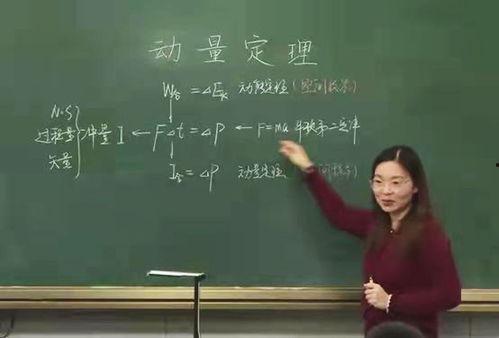 动量定理
W合=ΔEk 动能定理(空间效果)
N·S
过程量 冲量 I ← FΔt=ΔP ← F=ma 牛顿第二定律
矢量
I合=ΔP 动量定理